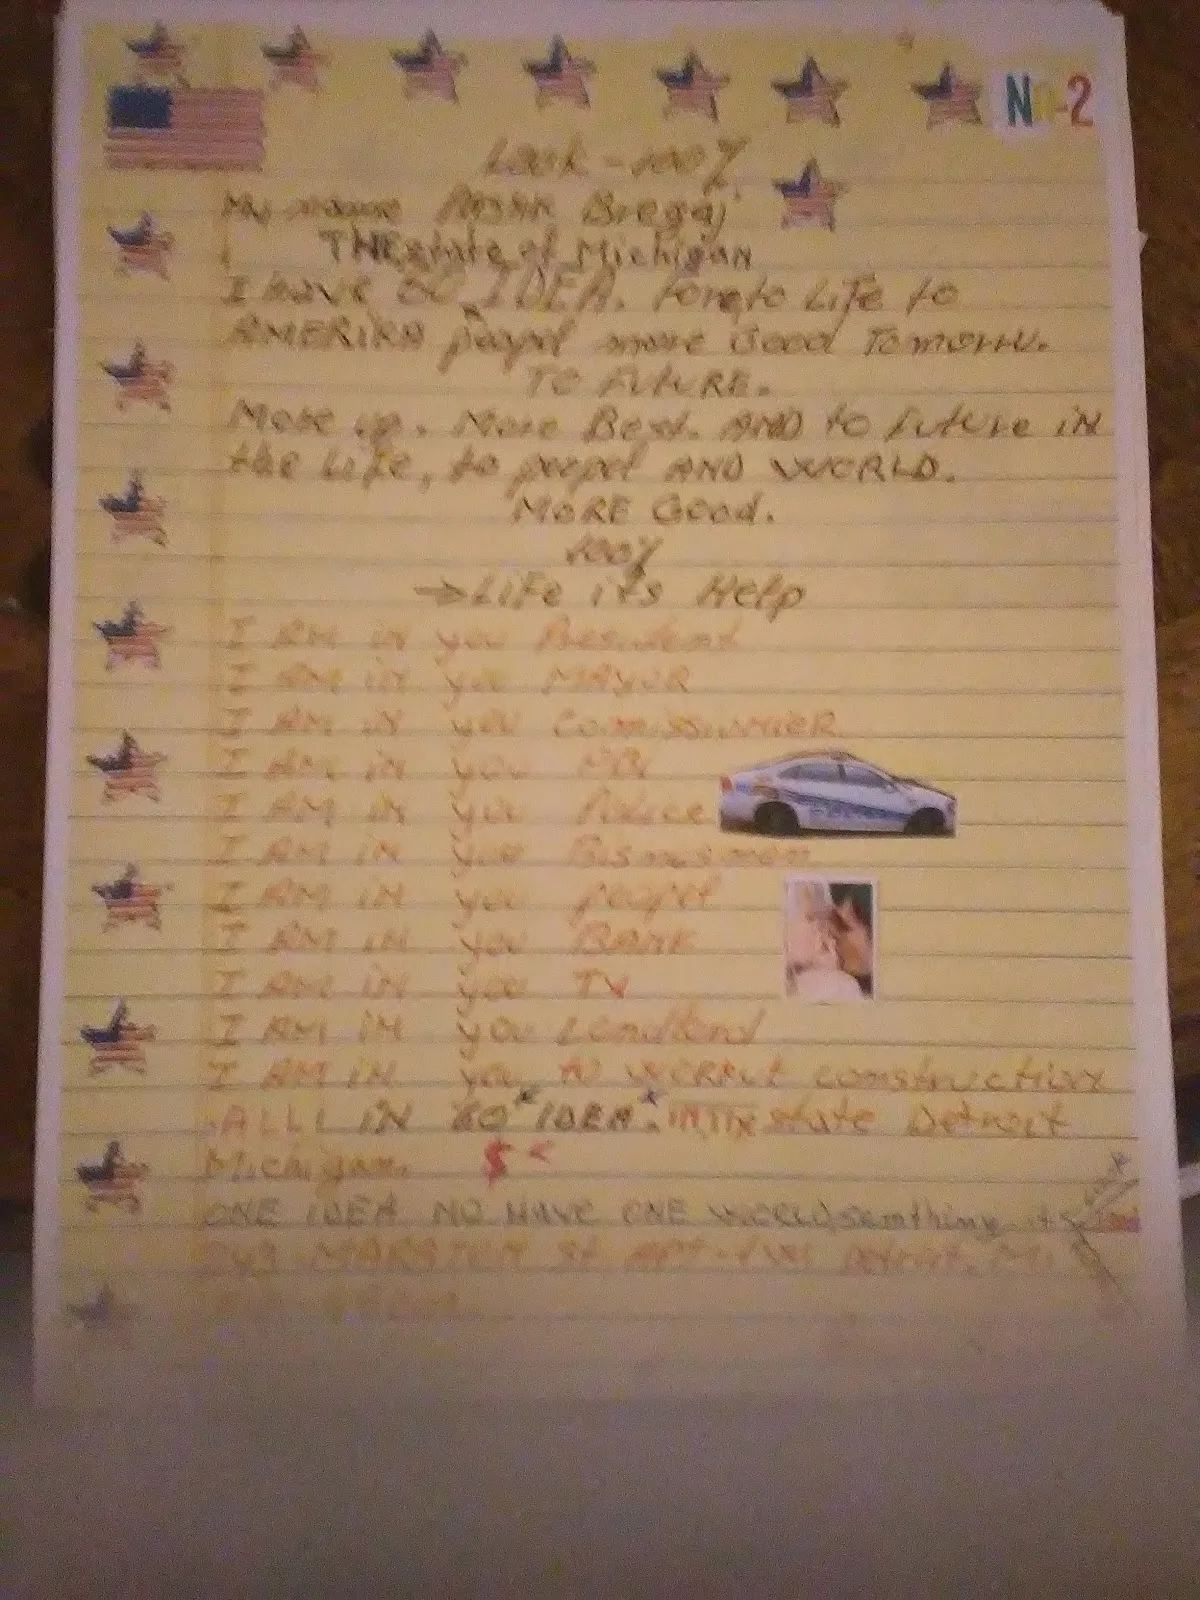 No-2
Look - 100%
My name Bregaj
THE state of Michigan
I have 60 IDEA. to Life to
AMERIKA peopel more Good Tomorrw.
TO FUTURE.
More up. More Best. AND to future iN
the Life, to peopel AND WORLD.
MORE Good.
100%
→ Life its Help
I AM iN you President
I AM iN you MAYOR
I AM iN you
I AM iN you FBI
I AM iN you Police
I AM iN you Bismusmen
I AM iN you peopel
I AM iN you BANK
I AM iN you TV
I AM iN you Landlord
I AM iN you TO construction
.ALLL iN 60 IDEA. state Detroit
Michigan. $ <
ONE IDEA NO HAVE ONE WORLD, its
MARSTON St APT- Detroit. Mi